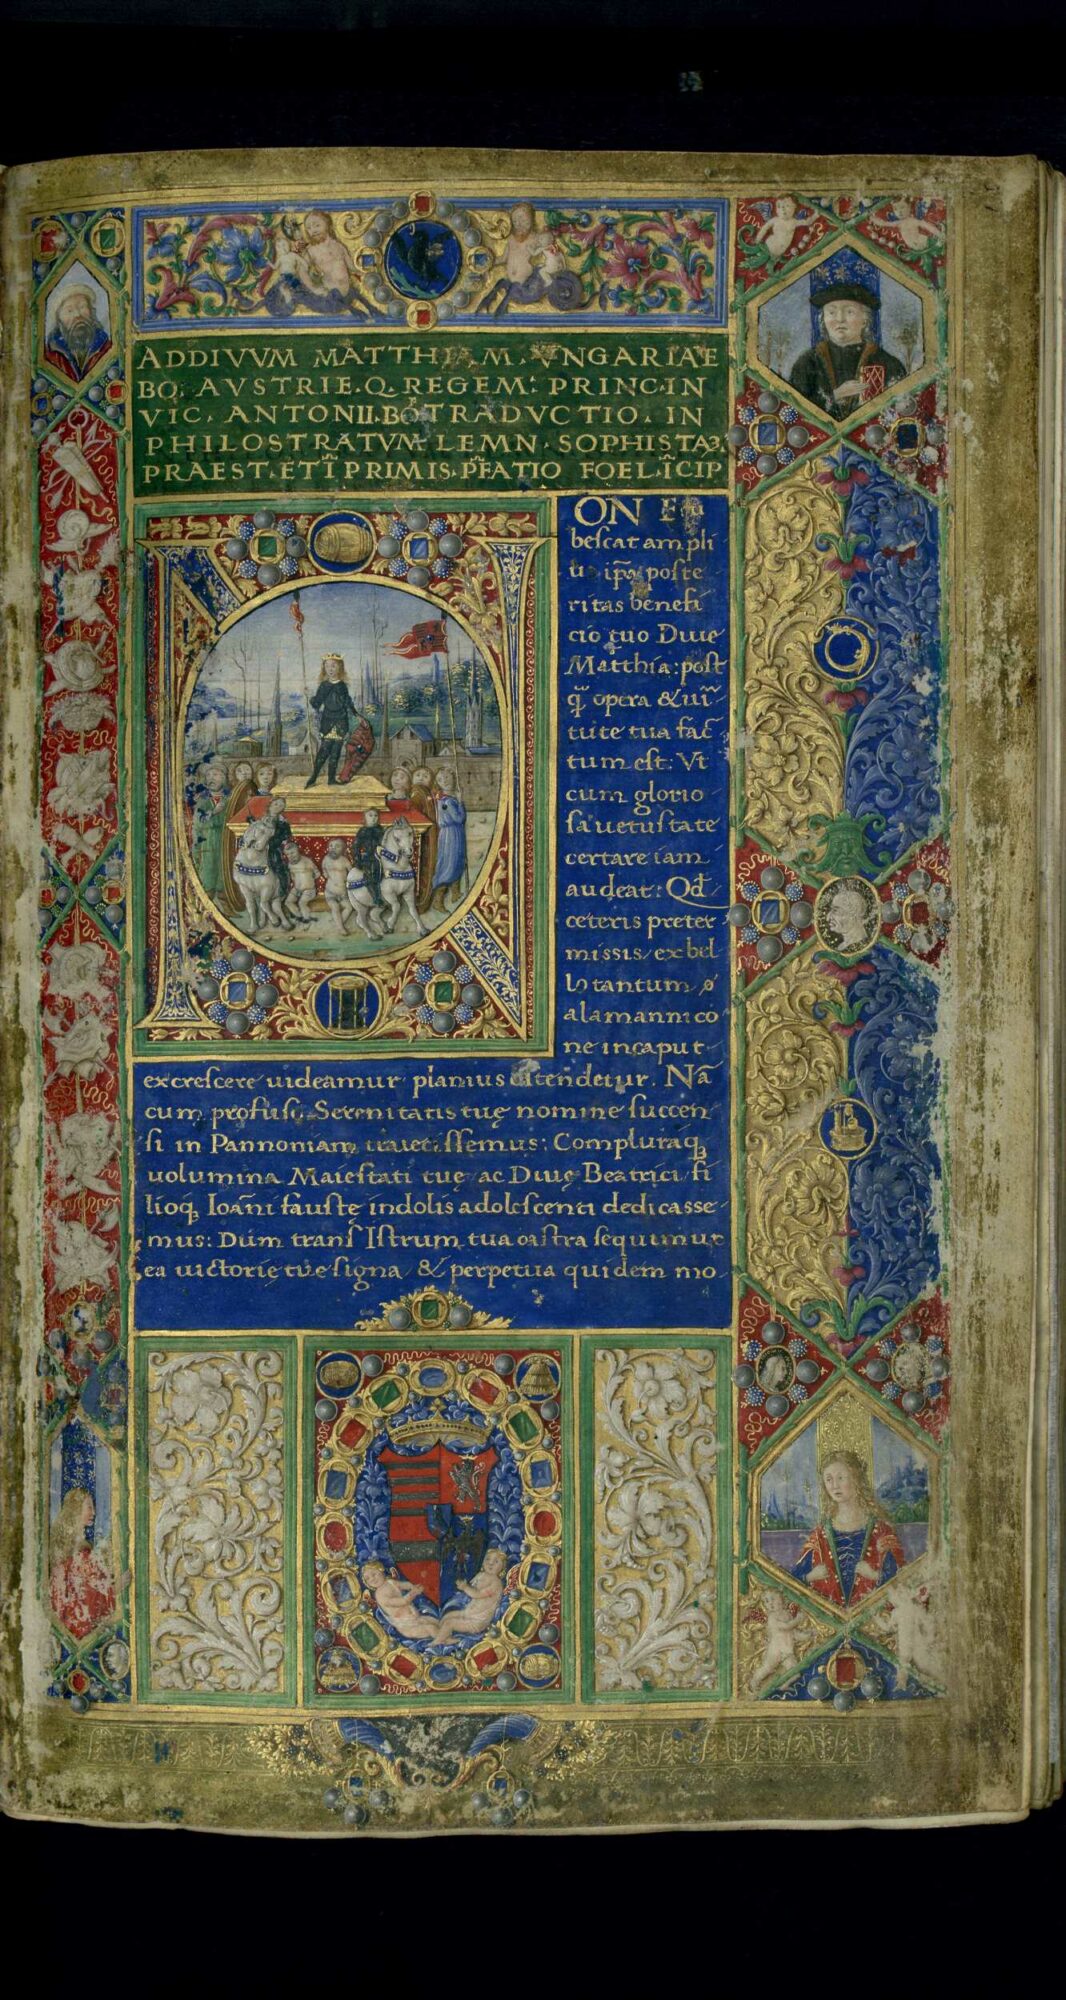 AD DIVVM MATTHIAM VNGARIAE
BO. AVSTRIE.Q. REGEM: PRINC. IN
VIC. ANTONII.BŌ. TRADVCTIO. IN
PHILOSTRATVM LEMN. SOPHISTAꝜ
PRAEST. ETĪ PRIMIS. P̄FATIO FOEL. ĪCIP
NON E
bescat ampli
poste
ritas benefi
cio tuo Diue
Matthia: post
q̄ opera & uir̄
tute tua fac
tum est: Vt
cum glorio
sa uetustate
certare iam
audeat: Qd̄
ceteris preter
missis/ ex bel
lo tantum
alamannico
ne in caput
excrescere uideamur planius ostendetur. Nā
cum profuso Serenitatis tuę nomine succen
si in Pannoniam
volumina Maiestati tuę ac Diuę Beatrici fi
lioq; Ioāni faustę indolis adolescenti dedicasse
mus: Dum trans Istrum tua castra sequimur
ea uictorię tue signa & perpetua quidem mo